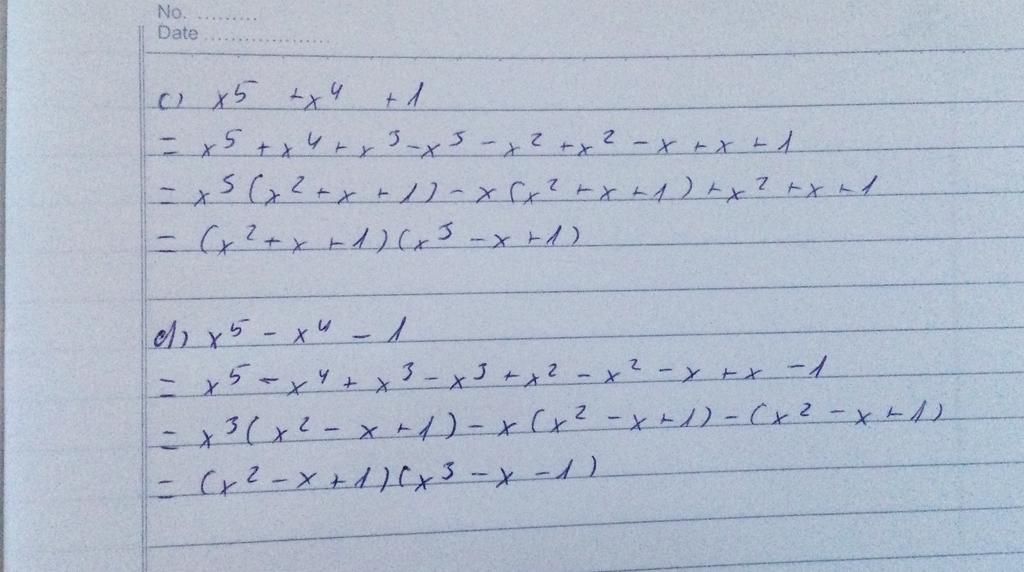 No. .........
Date ...................
c) x⁵ + x⁴ + 1
= x⁵ + x⁴ + x³ - x³ - x² + x² - x + x + 1
= x³(x² + x + 1) - x(x² + x + 1) + x² + x + 1
= (x² + x + 1)(x³ - x + 1)
d) x⁵ - x⁴ - 1
= x⁵ - x⁴ + x³ - x³ + x² - x² - x + x - 1
= x³(x² - x + 1) - x(x² - x + 1) - (x² - x + 1)
= (x² - x + 1)(x³ - x - 1)